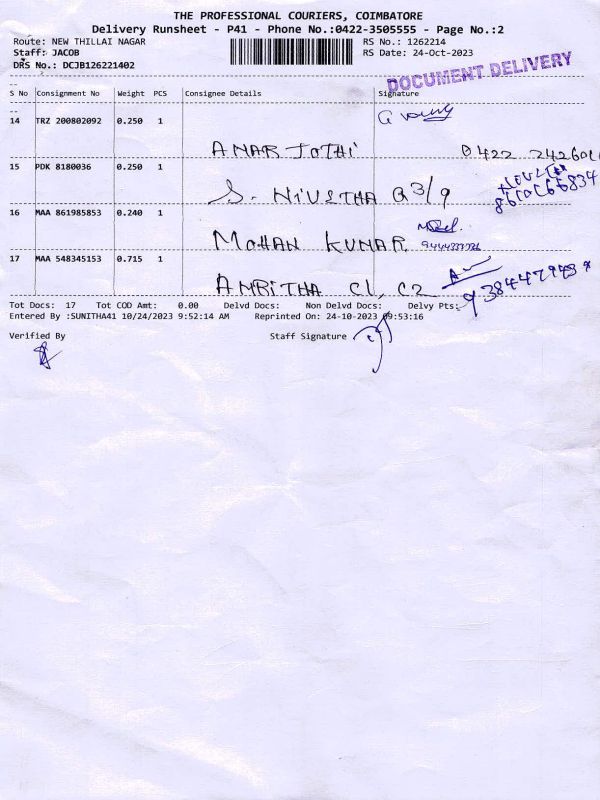 THE PROFESSIONAL COURIERS, COIMBATORE
Delivery Runsheet - P41 - Phone No.:0422-3505555 - Page No.:2
Route: NEW THILLAI NAGAR RS No.: 1262214
Staff: JACOB RS Date: 24-Oct-2023
DRS No.: DCJB126221402
DOCUMENT DELIVERY
S No Consignment No Weight PCS Consignee Details Signature
14 TRZ 200802092 0.250 1
AMAR JOTHI 0422
15 PDK 8180036 0.250 1
S. NIVETHA G3/9
16 MAA 861985853 0.240 1
MOHAN KUMAR
17 MAA 548345153 0.715 1
AMRITHA C1, C2
Tot Docs: 17 Tot COD Amt: 0.00 Delvd Docs: Non Delvd Docs: Delvy Pts:
Entered By :SUNITHA41 10/24/2023 9:52:14 AM Reprinted On: 24-10-2023 09:53:16
Verified By Staff Signature